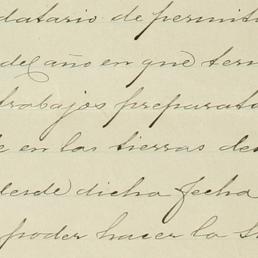 datario de permiti
del año en que ter
trabajos preparato
e en las tierras de
desde dicha fecha
poder hacer la s